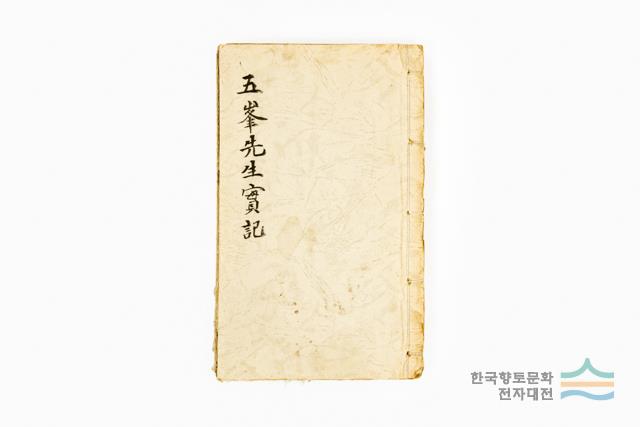 五峯先生實記
한국향토문화
전자대전